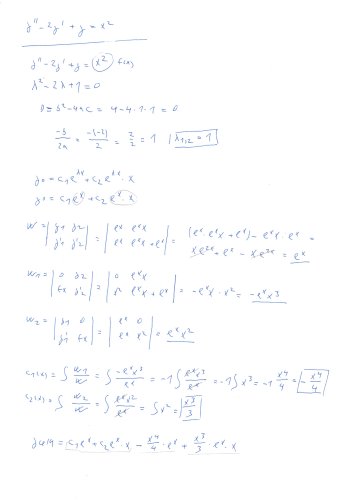 y'' - 2y' + y = x²
y'' - 2y' + y = x² f(x)
λ² - 2λ + 1 = 0
D = b² - 4ac = 4 - 4·1·1 = 0
-b/2a = -(-2)/2 = 2/2 = 1 | λ1,2 = 1
y0 = c1e^λx + c2e^λx · x
y0 = c1e^x + c2e^x · x
W = | y1 y2 | = | e^x e^x x | = (e^x · e^x x + e^x) - e^x x · e^x =
| y1' y2' | | e^x e^x x + e^x | x e^2x + e^x - x e^2x = e^x
W1 = | 0 y2 | = | 0 e^x x | = -e^x x · x² = -e^x x³
| fx y2' | | x² e^x x + e^x |
W2 = | y1 0 | = | e^x 0 | = e^x x²
| y1' fx | | e^x x² |
c1(x) = ∫ W1/W = ∫ -e^x x³/e^x = -1 ∫ e^x x³/e^x = -1 ∫ x³ = -1 x⁴/4 = -x⁴/4
c2(x) = ∫ W2/W = ∫ e^x x²/e^x = ∫ x² = x³/3
= c1e^x + c2e^x · x - x⁴/4 · e^x + x³/3 · e^x · x